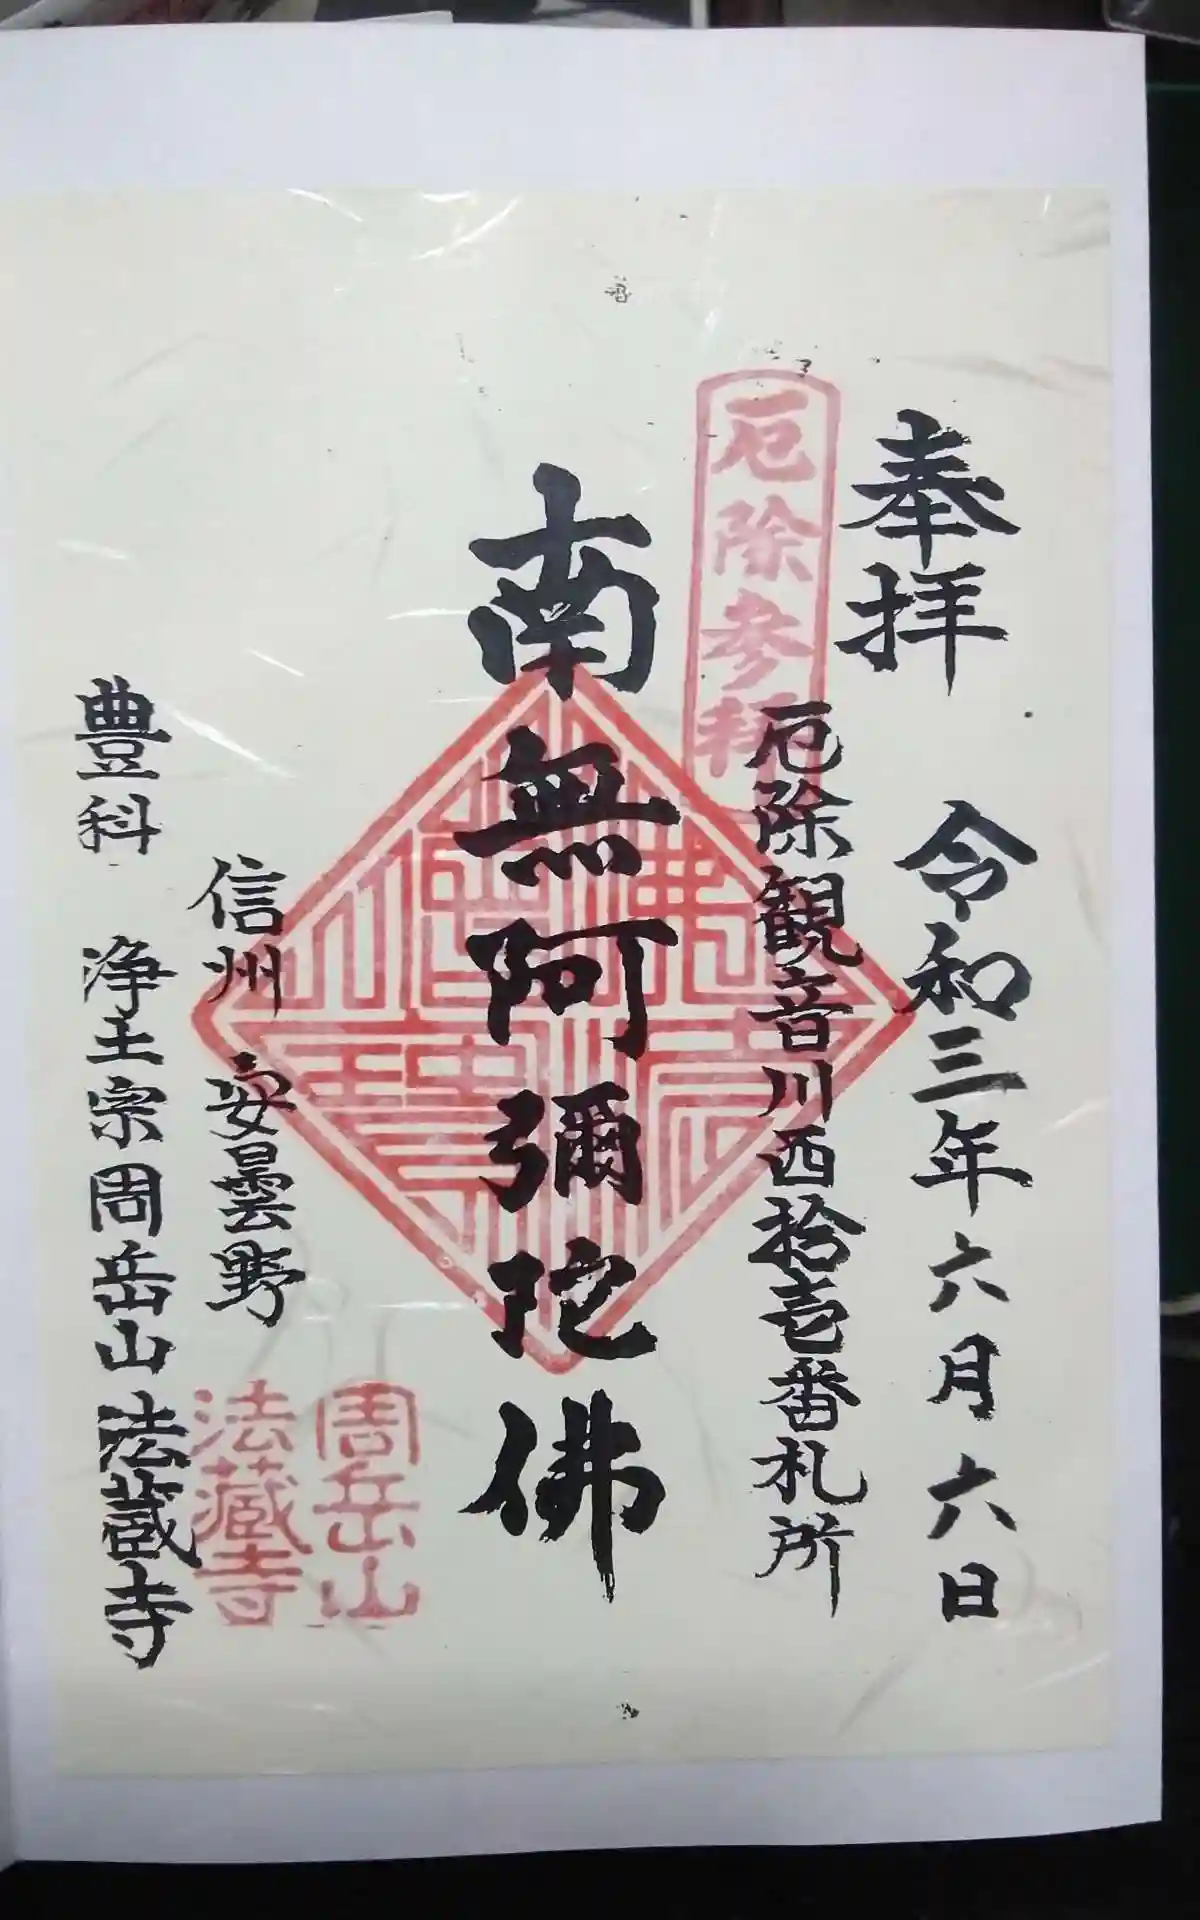 奉拝
令和三年六月六日
厄除参拝
厄除観音川西拾壱番札所
南無阿彌陀佛
信州 安曇野
周岳山
法蔵寺
豊科 浄土宗周岳山法蔵寺